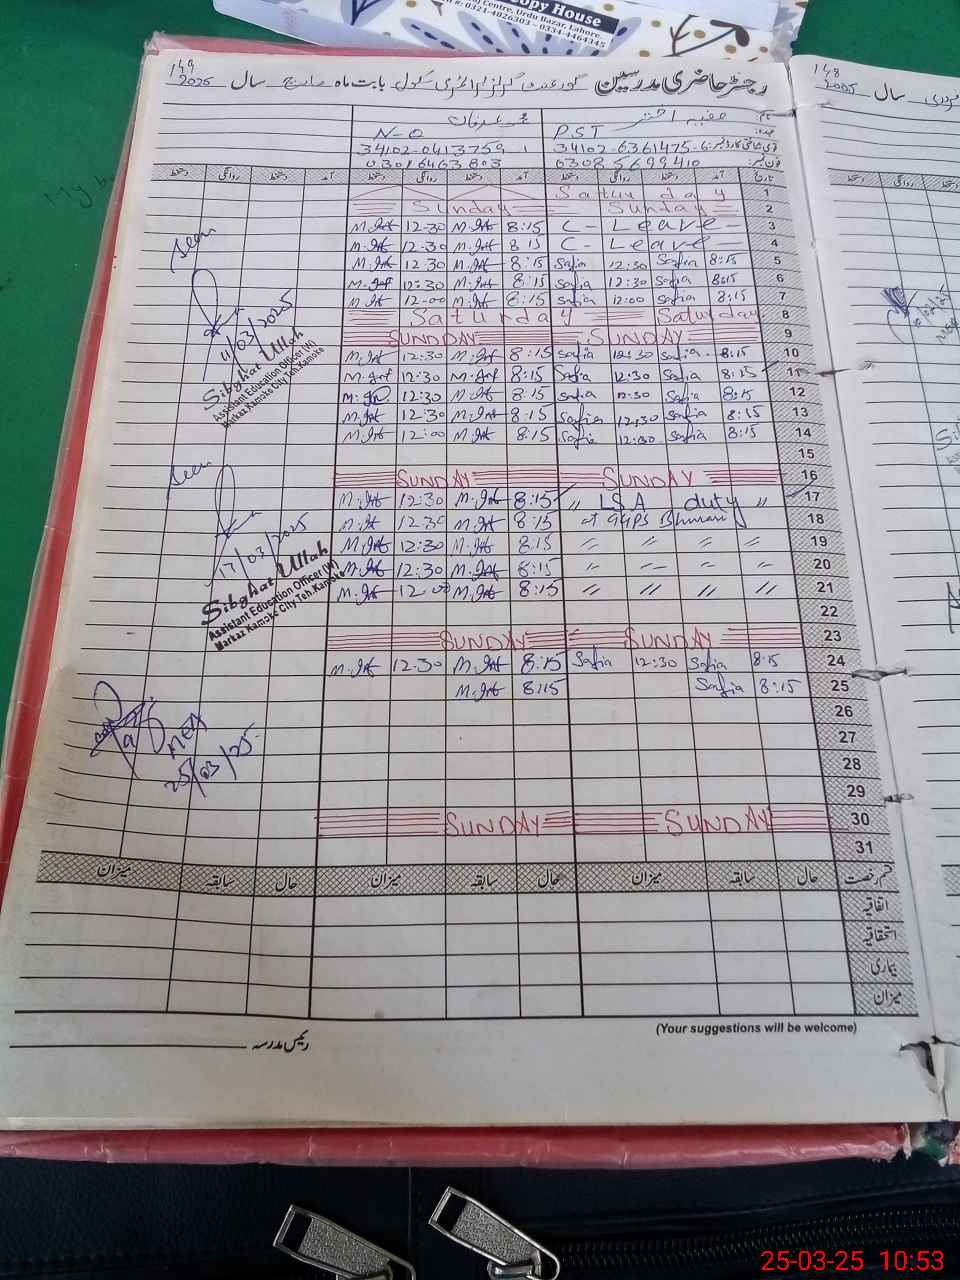 opy House
Centre, Urdu Bazar, Lahore.
#: 0321-4826303 - 0334-4464345
149
2025
رجسٹر حاضری مدرسین گورنمنٹ گرلز پرائمری سکول بابت ماہ مارچ سال
148
2025 سال
نام صفیہ اختر محمد عرفان
عہدہ PST N-O
34102-6361475-6 34102-0413759-1
فون نمبر: 03085699410 03016463803
تاریخ آمد دستخط روانگی دستخط آمد دستخط روانگی دستخط آمد دستخط روانگی دستخط
1 Saturday
2 Sunday Sunday
3 M.Irf 12-30 M.Irf 8:15 C - Leave -
4 M.Irf 12-30 M.Irf 8 15 C - Leave -
5 M.Irf 12 30 M.Irf 8:15 Safia 12:30 Safia 8:15
6 M.Irf 12:30 M.Irf 8:15 Safia 12:30 Safia 8:15
7 M.Irf 12-00 M.Irf 8:15 Safia 12:00 Safia 8:15
8 Saturday Saturday
9 SUNDAY SUNDAY
10 M.Irf 12:30 M.Irf 8:15 Safia 12:30 Safia 8:15
11 M.Irf 12:30 M.Irf 8:15 Safia 12:30 Safia 8:15
12 M.Irf 12:30 M.Irf 8:15 Safia 12:30 Safia 8:15
13 M.Irf 12:30 M.Irf 8:15 Safia 12:30 Safia 8:15
14 M.Irf 12:00 M.Irf 8:15 Safia 12:00 Safia 8:15
15
16 SUNDAY SUNDAY
17 M.Irf 12:30 M.Irf 8:15 " LSA duty "
18 M.Irf 12:30 M.Irf 8:15 at GGPS
19 M.Irf 12:30 M.Irf 8:15 " " " "
20 M.Irf 12:30 M.Irf 8:15 " " " "
21 M.Irf 12:00 M.Irf 8:15 " " " "
22
23 SUNDAY SUNDAY
24 M.Irf 12:30 M.Irf 8:15 Safia 12:30 Safia 8:15
25 M.Irf 8:15 Safia 8:15
26
27
28
29
30 SUNDAY SUNDAY
31
Seen
11/03/2025
Sibghat Ullah
Assistant Education Officer (M)
Markaz Kamoke City Teh.Kamoke
Seen
17/03/2025
Sibghat Ullah
Assistant Education Officer (M)
Markaz Kamoke City Teh.Kamoke
MEA
25/03/25
قسم رخصت حال سابقہ میزان حال سابقہ میزان حال سابقہ میزان
اتفاقیہ
استحقاقیہ
بیماری
میزان
(Your suggestions will be welcome)
رئیس مدرسہ
25-03-25 10:53